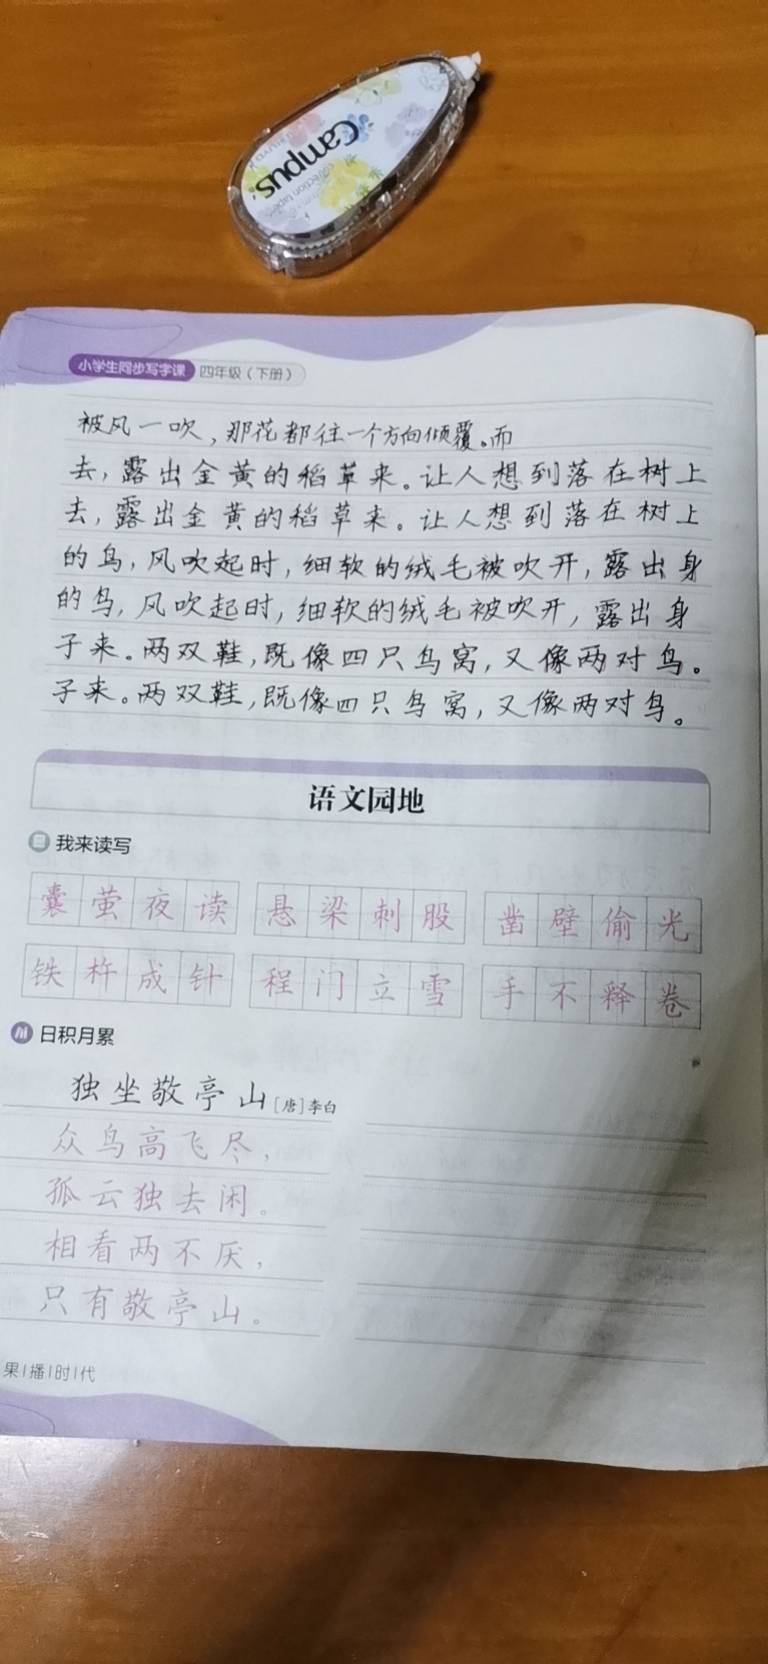 Campus
小学生同步写字课 四年级（下册）
被风一吹，那花都往一个方向倾覆。而
去，露出金黄的稻草来。让人想到落在树上
去，露出金黄的稻草来。让人想到落在树上
的鸟，风吹起时，细软的绒毛被吹开，露出身
的鸟，风吹起时，细软的绒毛被吹开，露出身
子来。两双鞋，既像四只鸟窝，又像两对鸟。
子来。两双鞋，既像四只鸟窝，又像两对鸟。
语文园地
我来读写
囊萤夜读 悬梁刺股 凿壁偷光
铁杵成针 程门立雪 手不释卷
日积月累
独坐敬亭山[唐]李白
众鸟高飞尽，
孤云独去闲。
相看两不厌，
只有敬亭山。
果|播|时|代